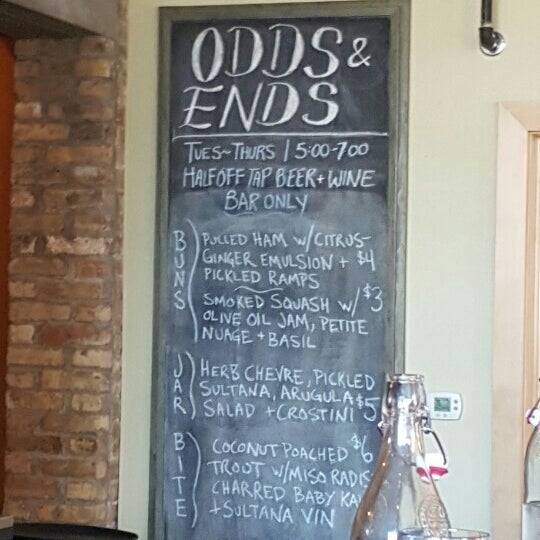 ODDS &
ENDS
TUES~THURS | 5:00-7:00
HALF OFF TAP BEER + WINE
BAR ONLY
BUNS
PULLED HAM W/CITRUS-
GINGER EMULSION + $4
PICKLED RAMPS
SMOKED SQUASH W/ $3
OLIVE OIL JAM, PETITE
NUAGE + BASIL
JAR
HERB CHEVRE, PICKLED
SULTANA, ARUGULA $5
SALAD + CROSTINI
BITE
COCONUT POACHED $6
TROUT W/MISO RADIS
CHARRED BABY
+ SULTANA VIN